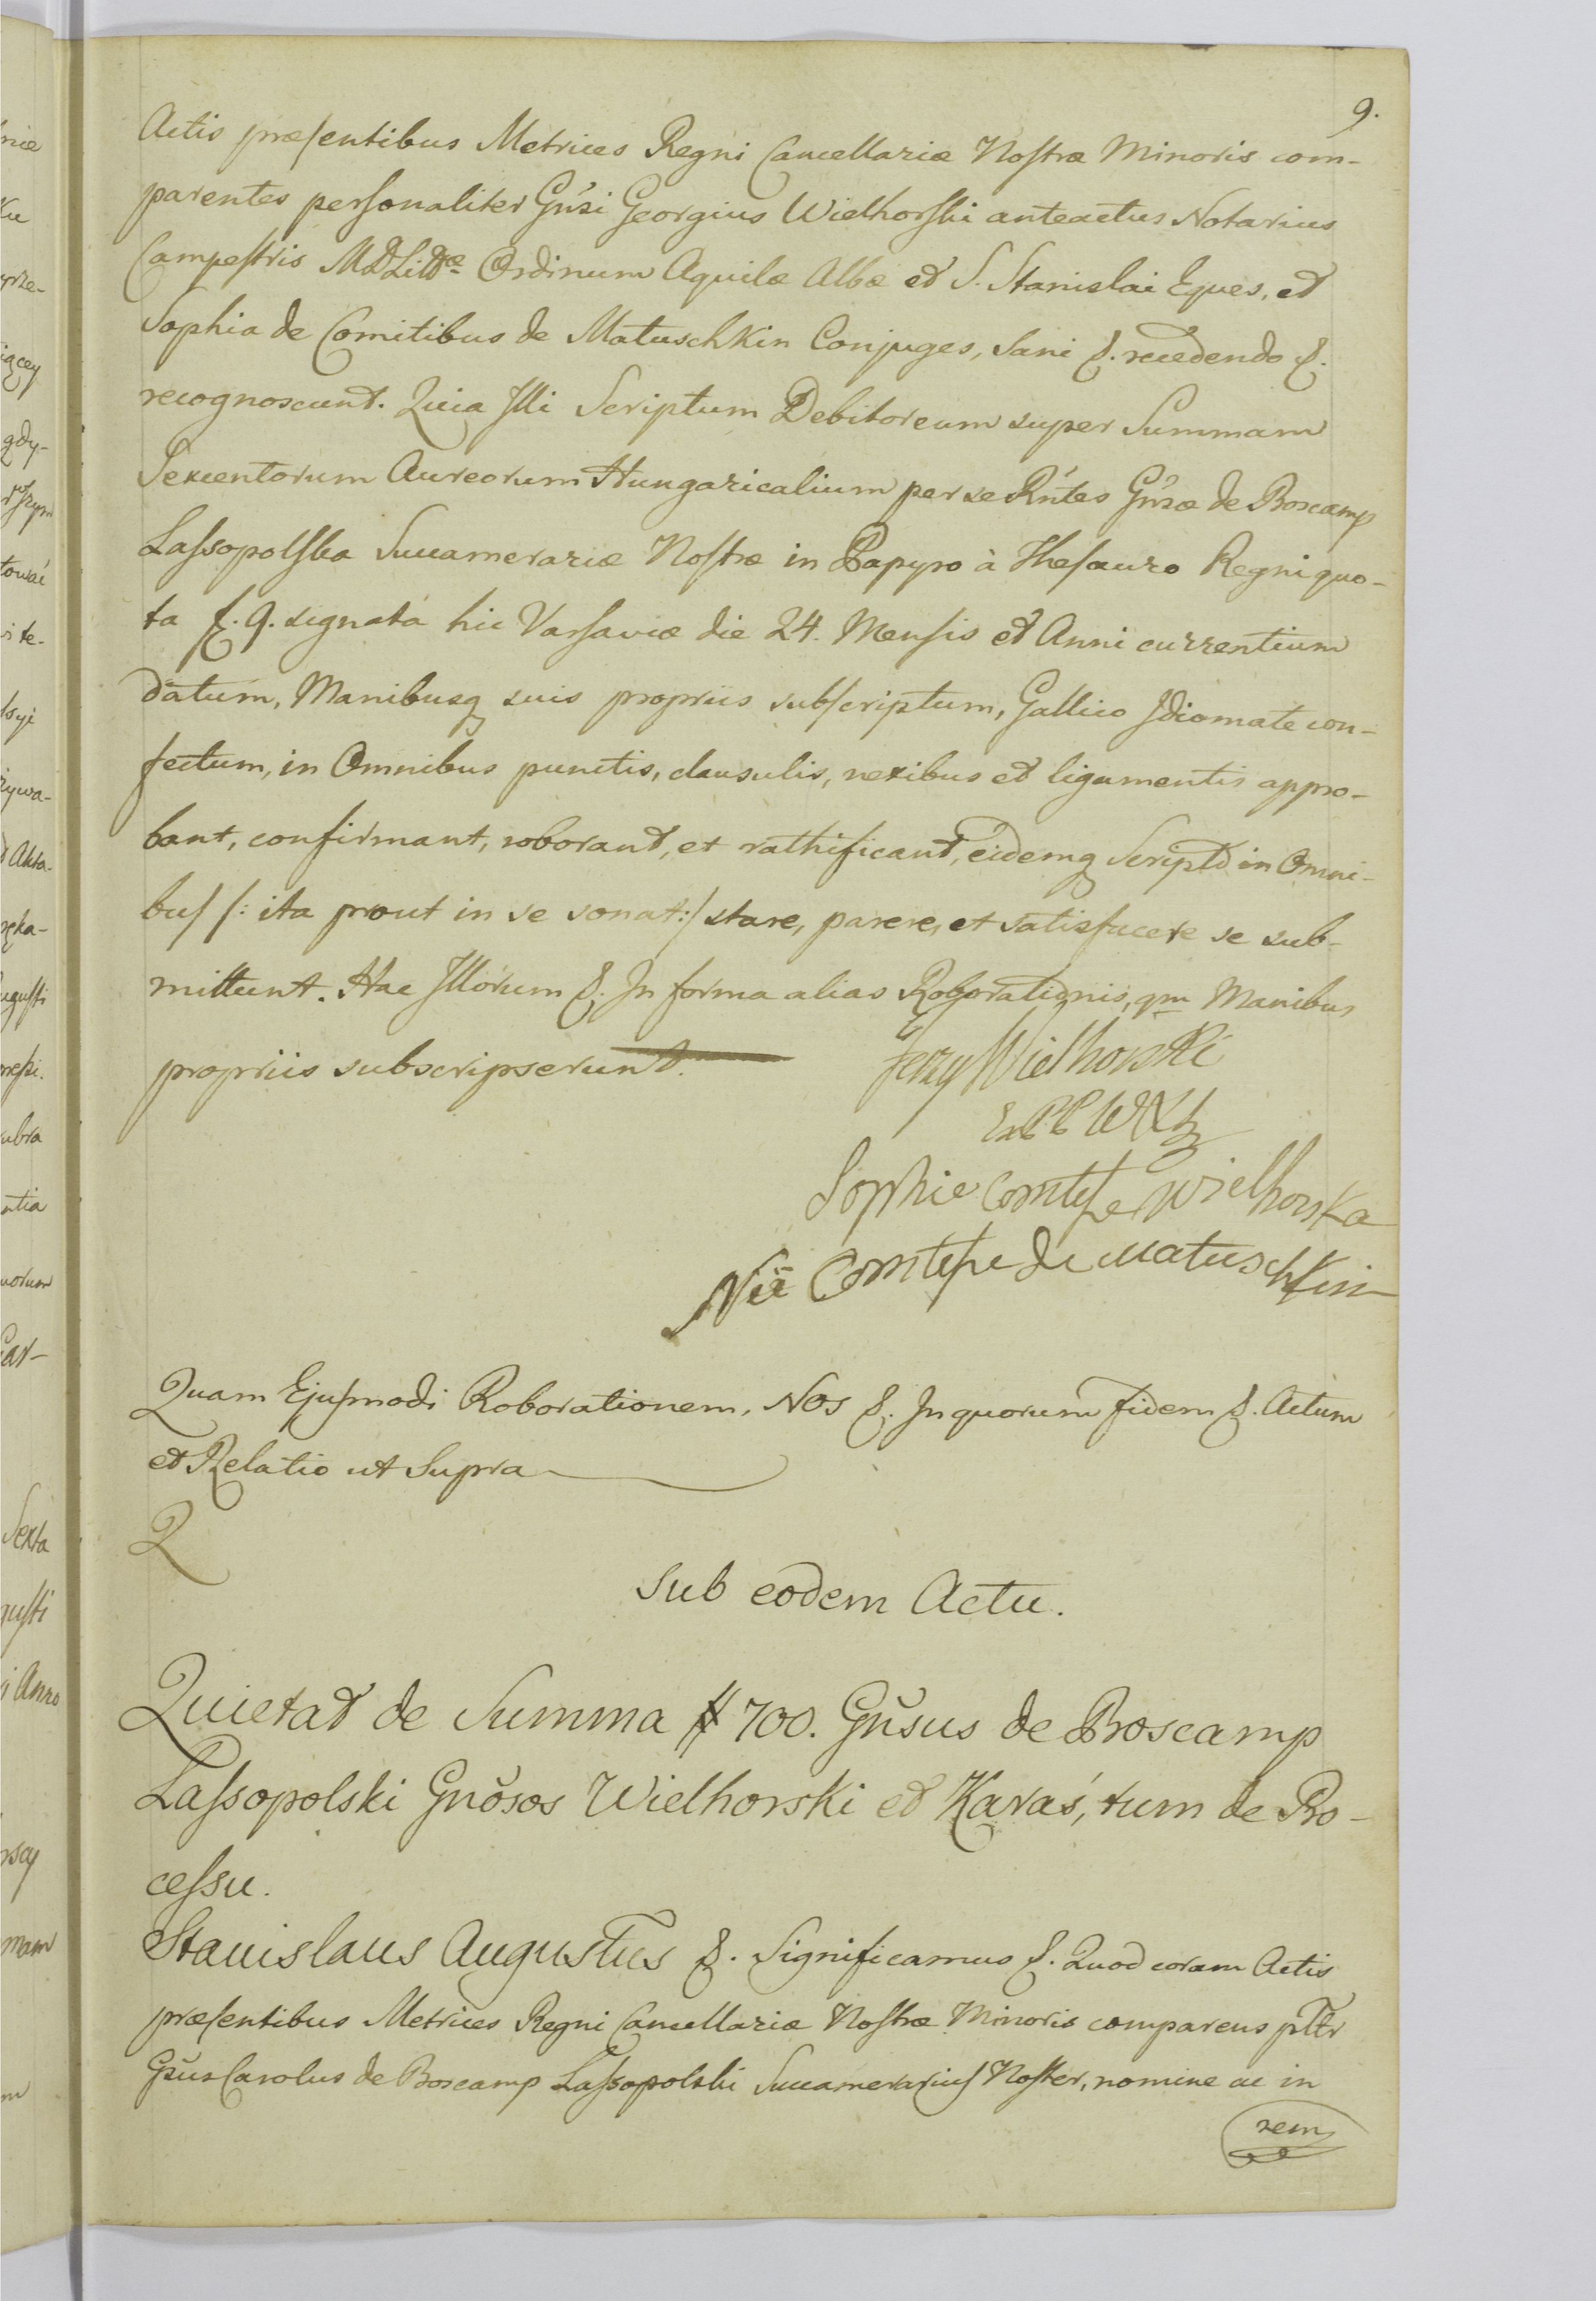 9.
Actis præsentibus Metrices Regni Cancellariæ Nostræ Minoris com-
parentes personaliter Gn̄si Georgius Wielhorski anteactus Notarius
Campestris MDLittæ Ordinum Aquilæ Albæ et S. Stanislai Eques, et
Sophia de Comitibus de Matuschkin Conjuges, Sani &. recedendo &.
recognoscunt. Quia Illi Scriptum Debitoreum super Summam
Sexcentorum Aureorum Hungaricalium per se Rn̄tes Gn̄sæ de Boscamp
Lassopolska Succamerariæ Nostræ in Papyro à Thesauro Regni quo-
ta f. 9. signatá hic Varsaviæ die 24. Mensis et Anni currentium
datum, Manibusq suis propriis subscriptum, Gallico Idiomate con-
fectum, in Omnibus punctis, clausulis, nexibus et ligamentis appro-
bant, confirmant, roborant, et rathificant, eidemq Scripto in Omni-
bus /: ita prout in se sonat :/ stare, parere, et satisfacere se sub-
mittunt. Hac Illorum &. In forma alias Roborationis, qm Manibus
propriis subscripserunt.
Jerzy Wielhorski
Sophie Comtesse Wielhorska
Née Comtesse de Matuschkin
Quam Ejusmodi Roborationem, Nos &. In quorum fidem &. Actum
et Relatio ut Supra
Q
Sub eodem Actu.
Quietat de Summa # 700. Gn̄sus de Boscamp
Lassopolski Gnōsos Wielhorski et Karaś, tum de Pro-
cessu.
Stanislaus Augustus &. Significamus &. Quod coram Actis
præsentibus Metrices Regni Cancellariæ Nostræ Minoris comparens pltr
Gsus Carolus de Boscamp Lassopolski Succamerarius Noster, nomine ac in
rem